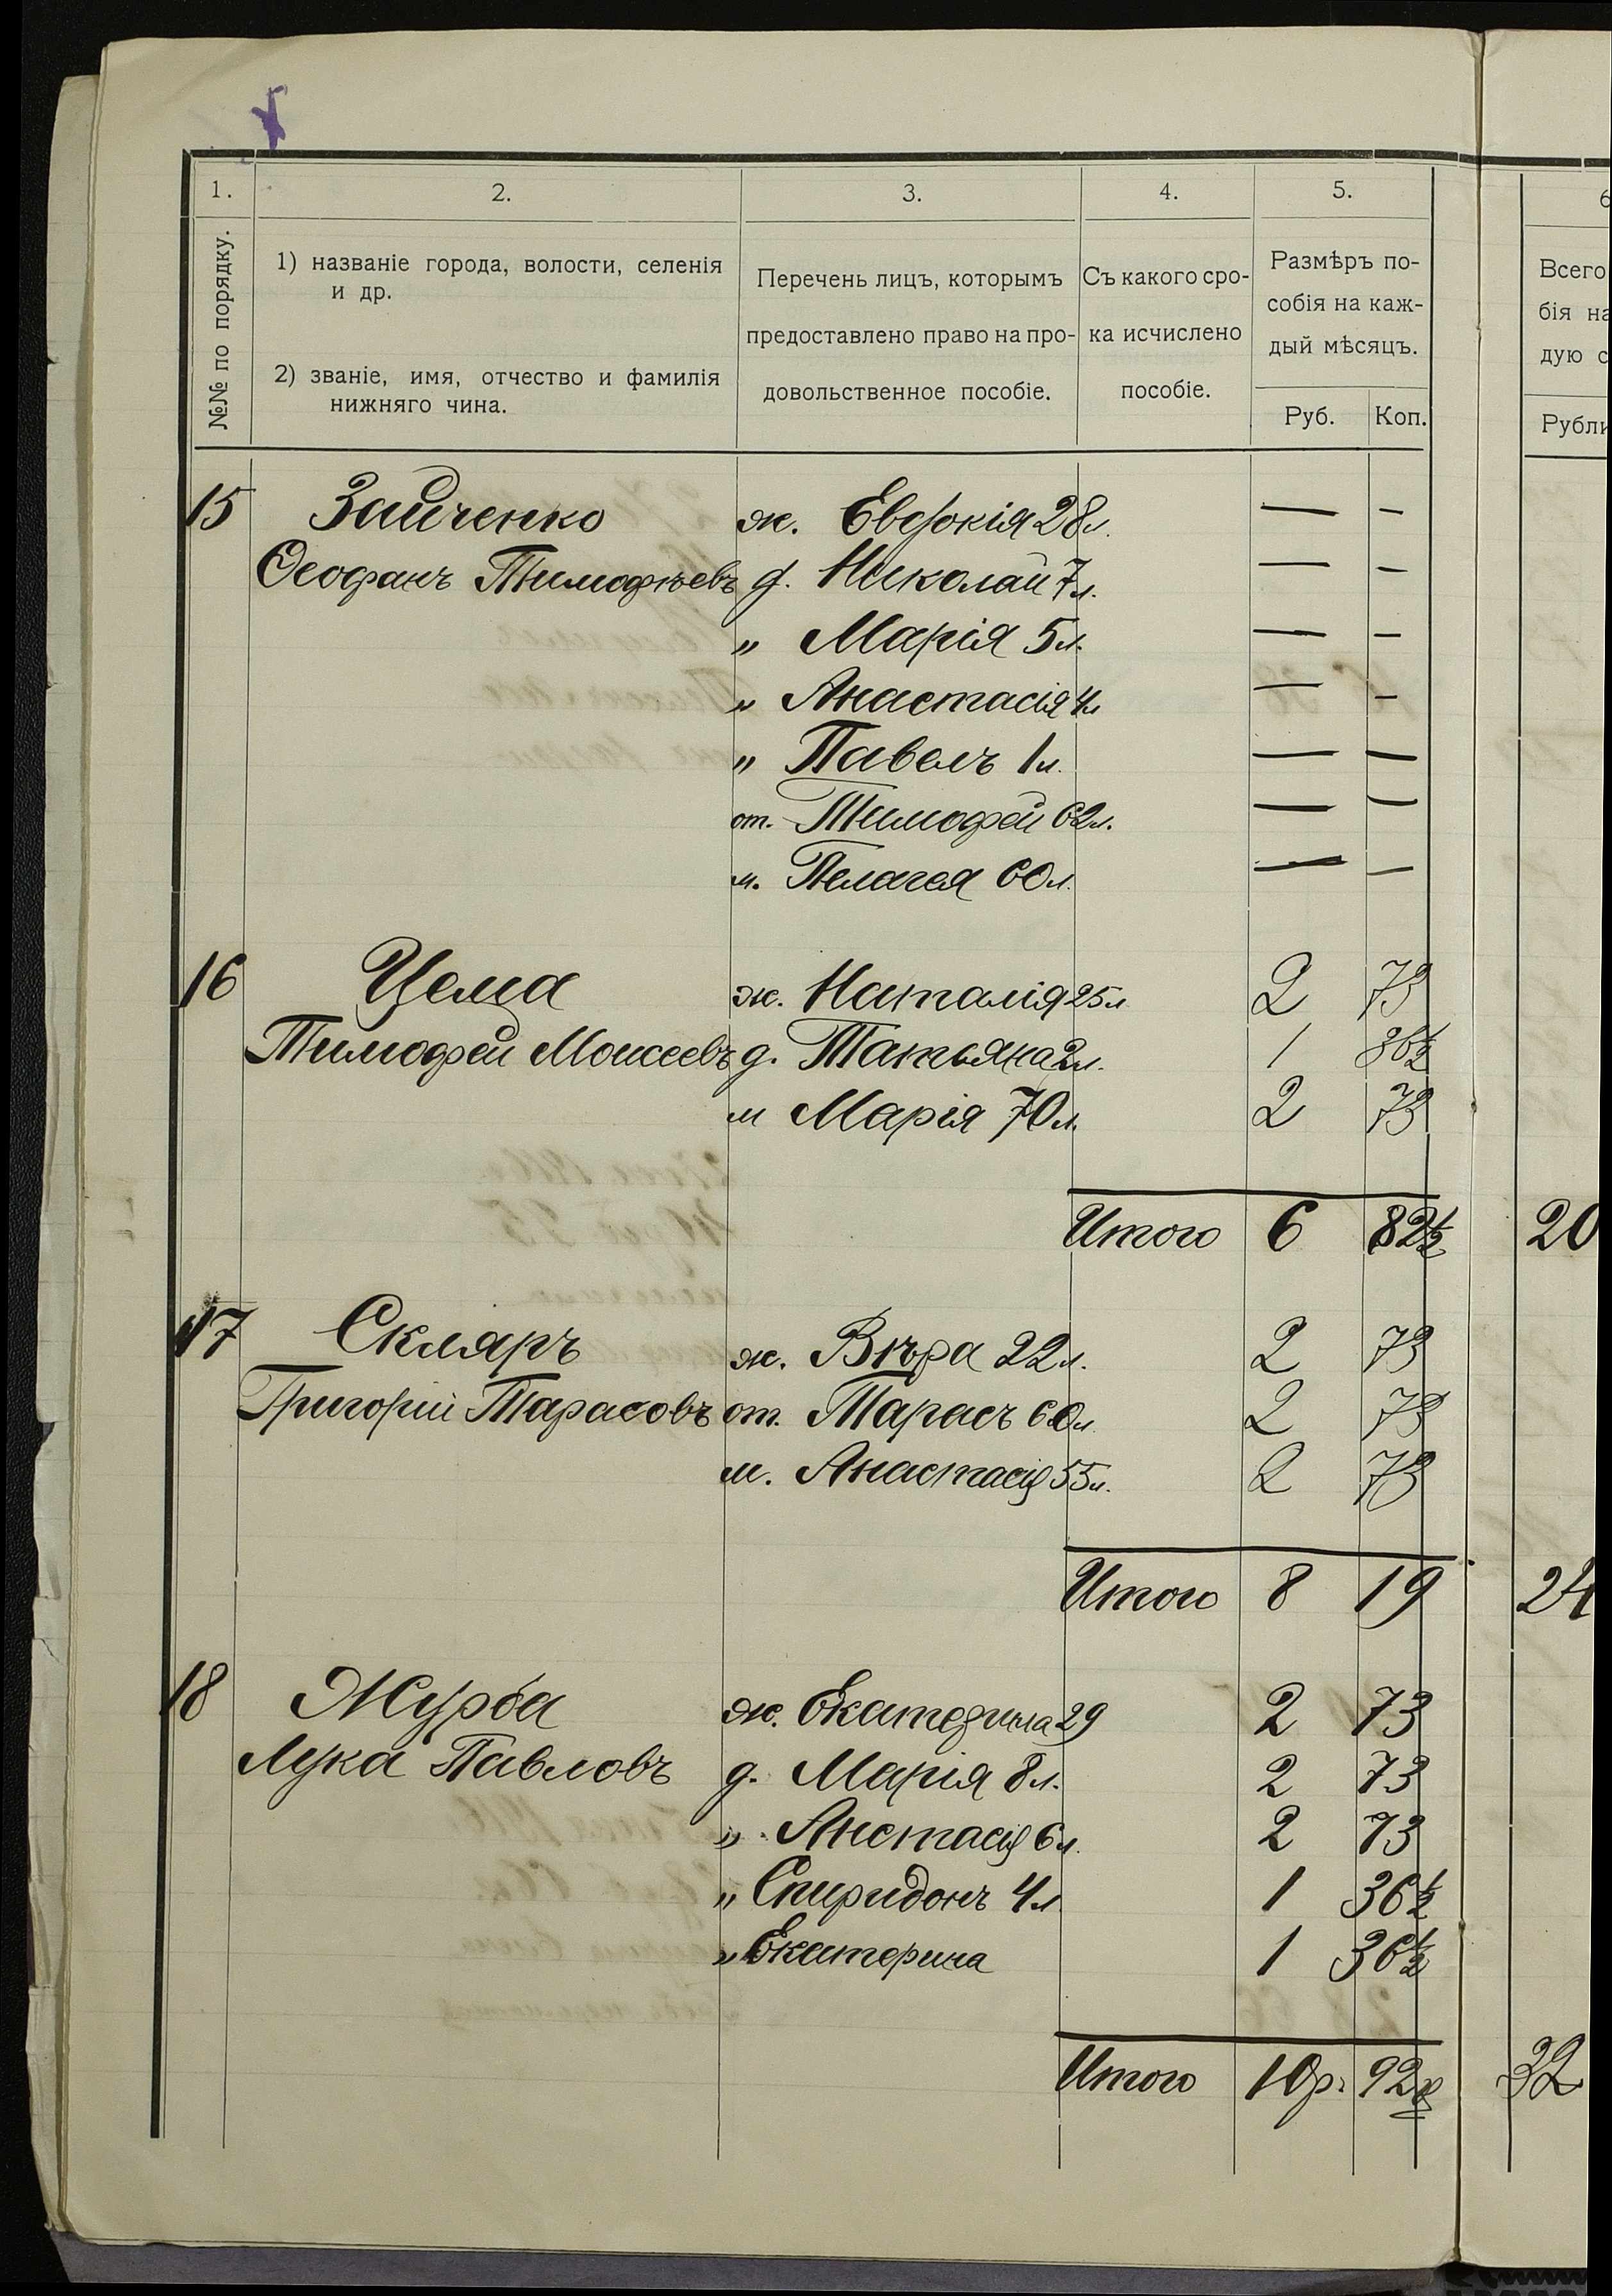 1. 2. 3. 4. 5. 6
№№ по порядку.
1) названіе города, волости, селенія
и др.
2) званіе, имя, отчество и фамилія
нижняго чина.
Перечень лицъ, которымъ
предоставлено право на про-
довольственное пособіе.
Съ какого сро-
ка исчислено
пособіе.
Размѣръ по-
собія на каж-
дый мѣсяцъ.
Руб. Коп.
Всего
бія на
дую с
Рубли
15 Зайченко ж. Евдокія 28 л. — —
Ѳеофанъ Тимофѣевъ д. Николай 7 л. — —
" Марія 5 л. — —
" Анастасія 4 л — —
" Павелъ 1 л. — —
от. Тимофей 62 л. — —
м. Пелагея 60 л. — —
16 Цема ж. Наталія 25 л 2 73
Тимофей Моисеевъ д. Татьяна 2 л. 1 36½
м Марія 70 л. 2 73
Итого 6 82½ 20
17 Скляръ ж. Вѣра 22 л. 2 73
Григорій Тарасовъ от. Тарасъ 60 л 2 73
м. Анастасія 55 л. 2 73
Итого 8 19 24
18 Журба ж. Екатерина 29 2 73
Лука Павловъ д. Марія 8 л. 2 73
" Анстасія 6 л. 2 73
" Спиридонъ 4 л 1 36½
" Екатерина 1 36½
Итого 10 р. 92 32